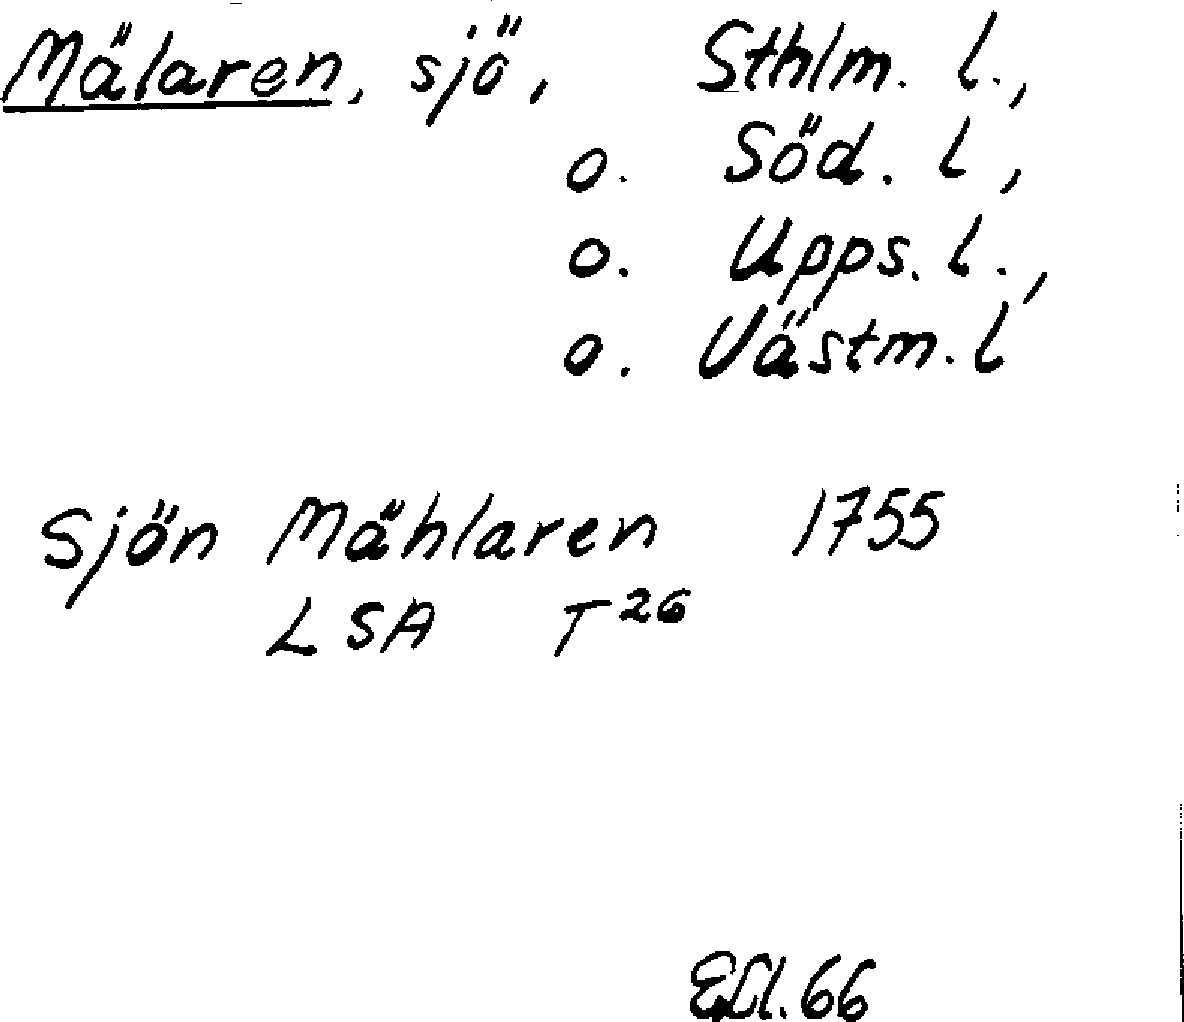 Mälaren, sjö, Sthlm. l.,
o. Söd. l,
o. Upps. l.,
o. Västm. l
Sjön Mählaren 1755
LSA T26
66